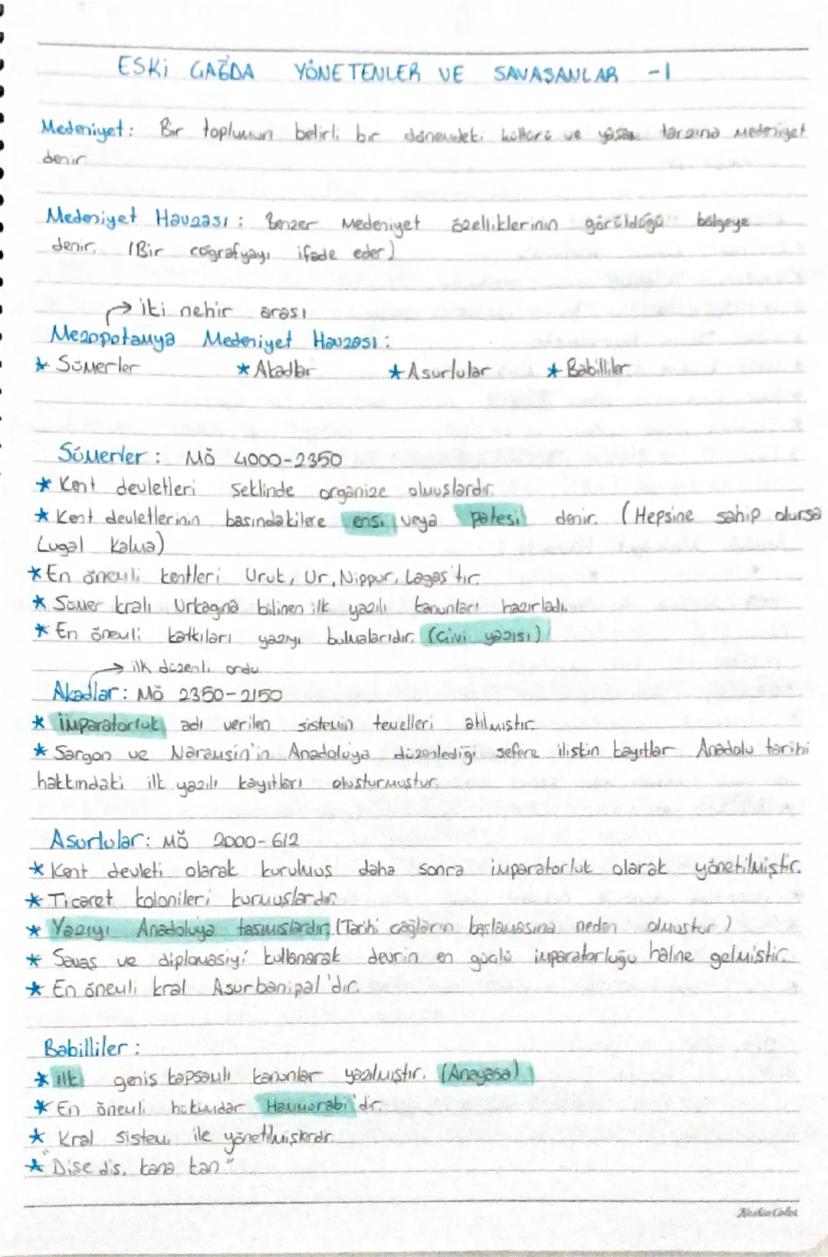 ESKİ ÇAĞDA YÖNETENLER VE SAVAŞANLAR -1
Medeniyet: Bir toplumun belirli bir dönemdeki kültürü ve yaşam tarzına medeniyet
denir.
Medeniyet Havzası: Benzer medeniyet özelliklerinin görüldüğü bölgeye
denir. (Bir coğrafyayı ifade eder)
→ iki nehir arası
Mezopotamya Medeniyet Havzası:
* Sümerler * Akadlar * Asurlular * Babilliler
Sümerler: MÖ 4000-2350
* Kent devletleri şeklinde organize olmuşlardır.
* Kent devletlerinin başındakilere ensi veya patesi denir. (Hepsine sahip olursa
Lugal Kalma)
* En önemli kentleri Uruk, Ur, Nippur, Lagaş'tır.
* Sümer kralı Urkagina bilinen ilk yazılı kanunları hazırladı.
* En önemli katkıları yazıyı bulmalarıdır. (Çivi yazısı)
→ ilk düzenli ordu
Akadlar: MÖ 2350-2150
* İmparatorluk adı verilen sistemin temelleri atılmıştır.
* Sargon ve Naramsin'in Anadolu'ya düzenlediği sefere ilişkin kayıtlar Anadolu tarihi
hakkındaki ilk yazılı kayıtları oluşturmuştur.
Asurlular: MÖ 2000-612
* Kent devleti olarak kurulmuş daha sonra imparatorluk olarak yönetilmiştir.
* Ticaret kolonileri kurmuşlardır.
* Yazıyı Anadoluya taşımışlardır. (Tarihi çağların başlamasına neden olmuştur.)
* Savaş ve diplomasiyi kullanarak devrin en güçlü imparatorluğu haline gelmiştir.
* En önemli kral Asurbanipal'dır.
Babilliler:
* ilk geniş kapsamlı kanunlar yazılmıştır. (Anayasa)
* En önemli hükümdar Hammurabi'dir.
* Kral sistemi ile yönetilmişlerdir.
* "Dişe diş, kana kan"